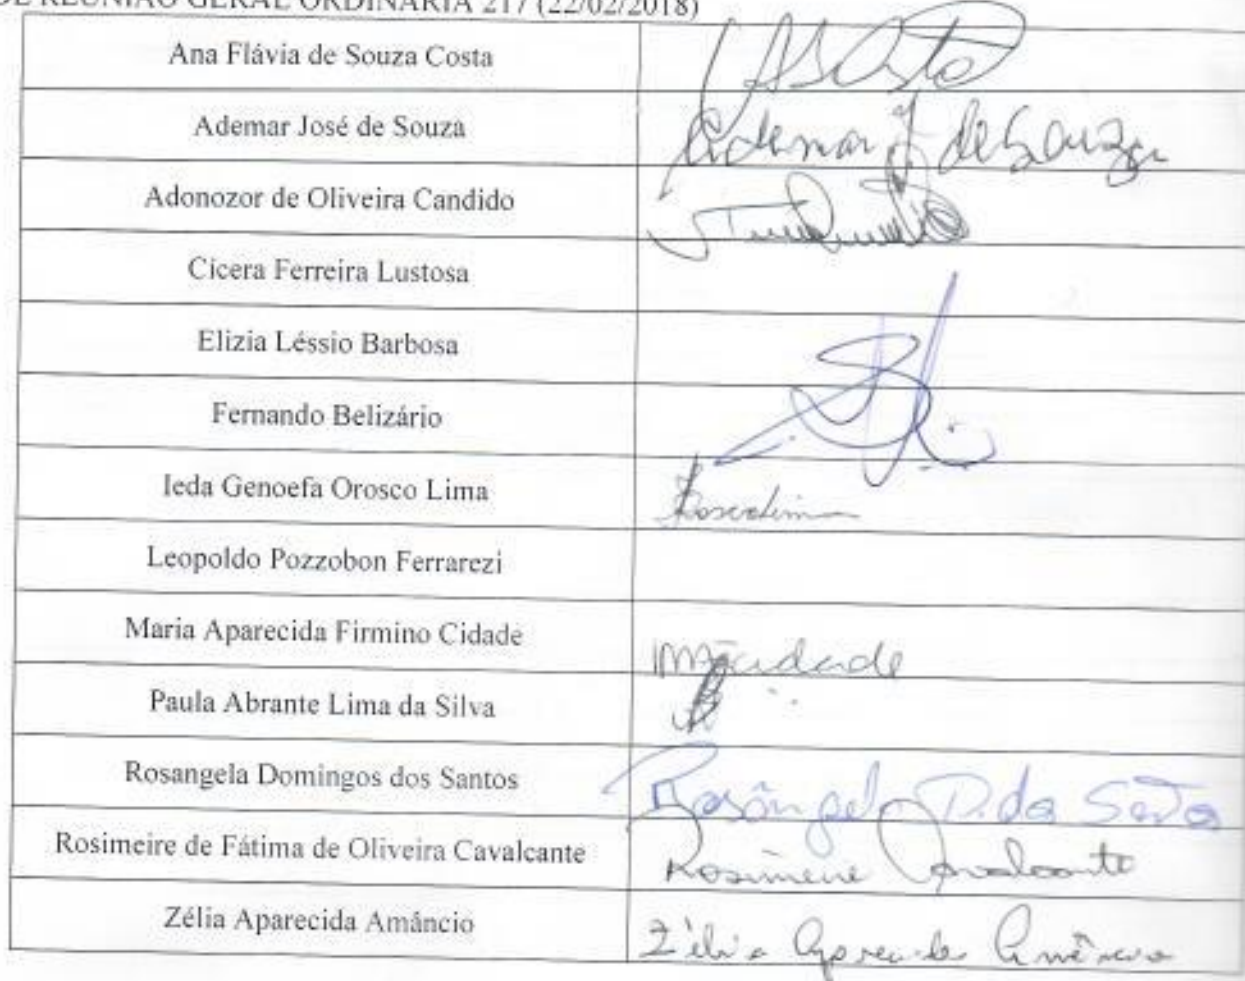 DE REUNIÃO GERAL ORDINÁRIA 217 (22/02/2018)
Ana Flávia de Souza Costa
Ademar José de Souza Ademar J de Souza
Adonozor de Oliveira Candido
Cícera Ferreira Lustosa
Elizia Léssio Barbosa
Fernando Belizário
Ieda Genoefa Orosco Lima
Leopoldo Pozzobon Ferrarezi
Maria Aparecida Firmino Cidade
Paula Abrante Lima da Silva
Rosangela Domingos dos Santos Rosângela D. dos
Rosimeire de Fátima de Oliveira Cavalcante Rosimeire Cavalcante
Zélia Aparecida Amâncio Zélia Aparecida Amâncio